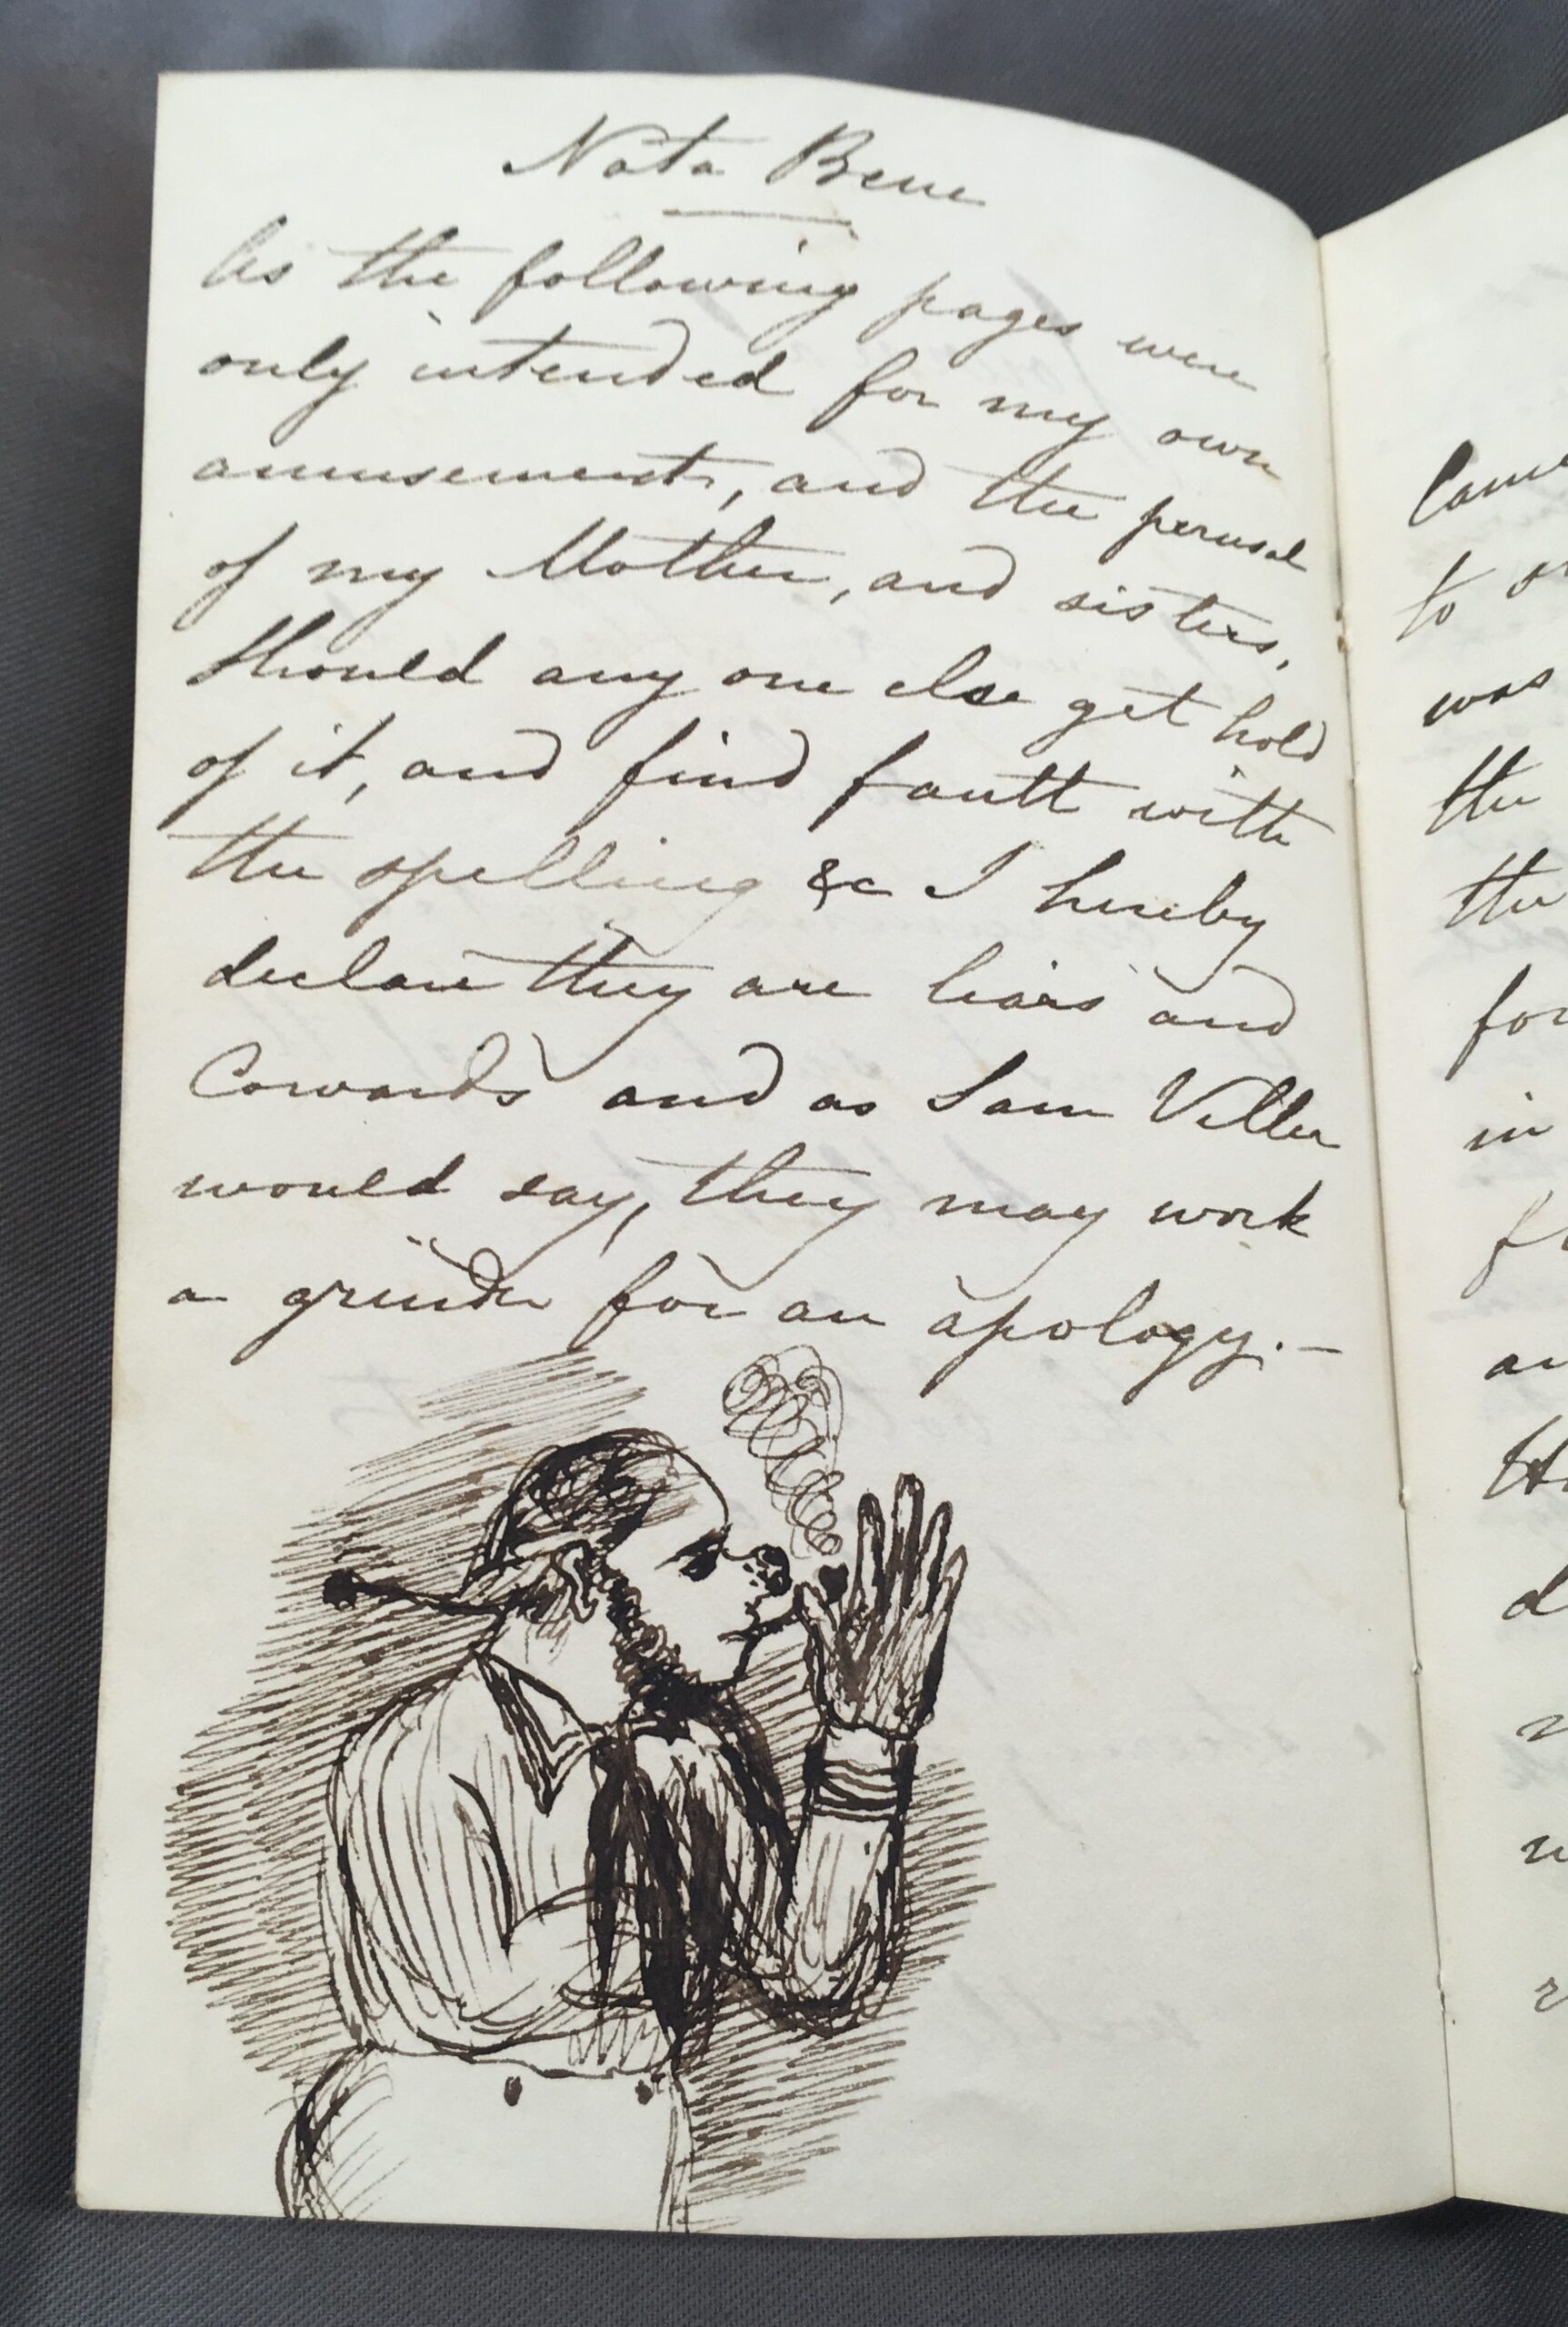 Nota Bene
As the following pages were
only intended for my own
amusement, and the perusal
of my Mother, and sisters,
Should any one else get hold
of it, and find fault with
the spelling &c I hereby
declare they are liars and
Cowards and as Sam Veller
would say, they may work
a grinder for an apology. —
to
was
the
the
in